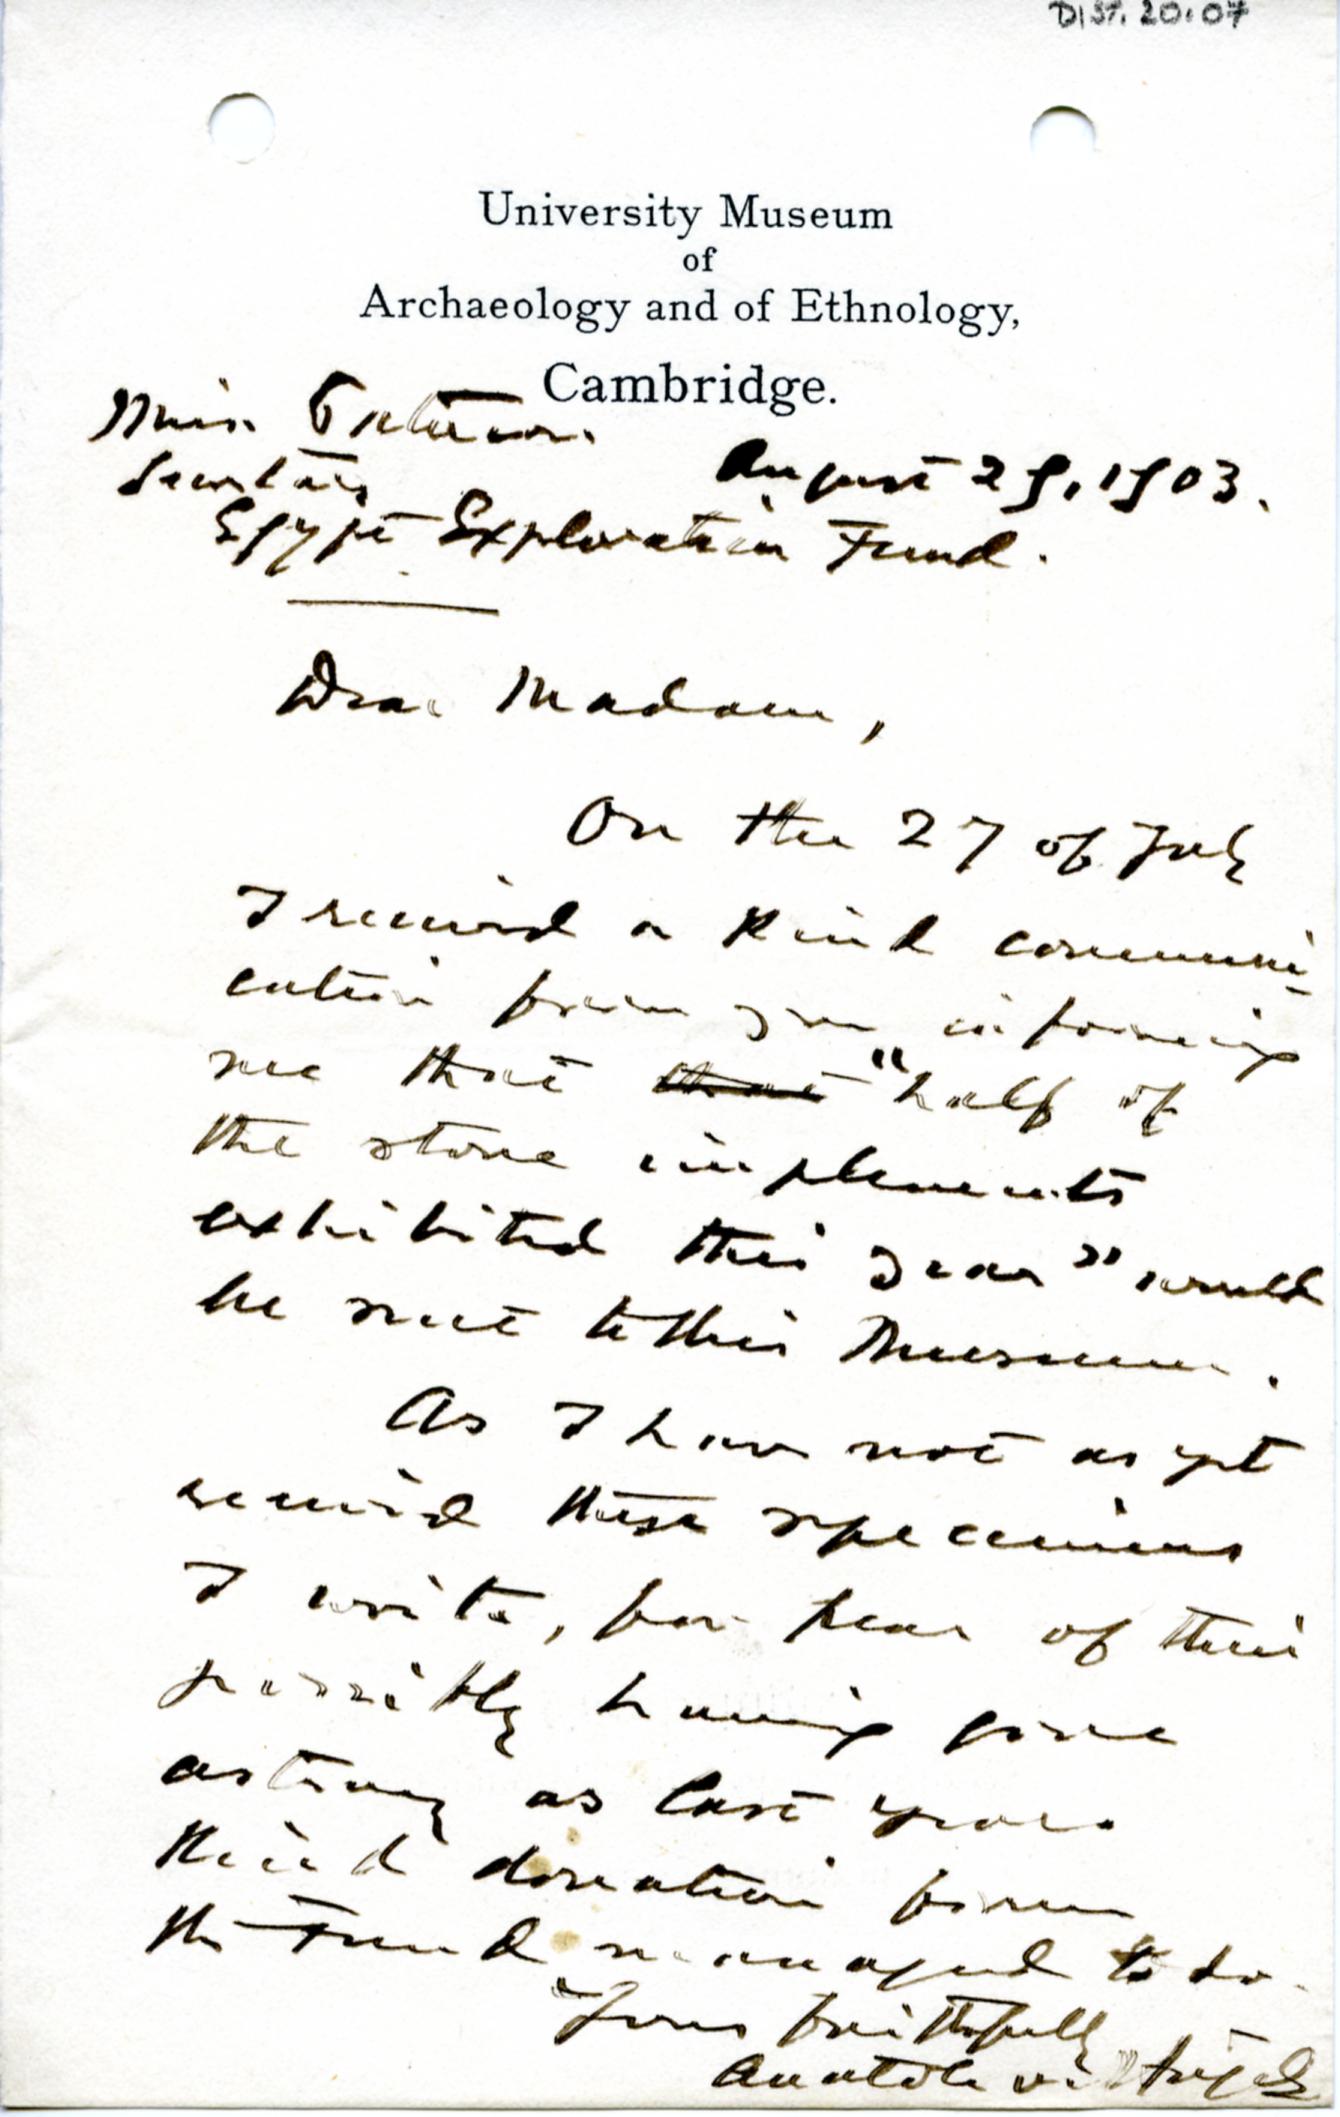 DIST. 20.07
University Museum
of
Archaeology and of Ethnology,
Cambridge.
Miss Paterson.
August 29, 1903.
Secretary
Egypt Exploration Fund.
Dear Madam,
On the 27 of July
I received a kind communi-
cation from you informing
me that that "half of
the stone implements
exhibited this year" would
be sent to this Museum.
As I have not as yet
received these specimens
I write, for fear of their
possibly having gone
astray as last years
kind donation from
the Fund managed to do.
Yours faithfully
Anatole von Hügel